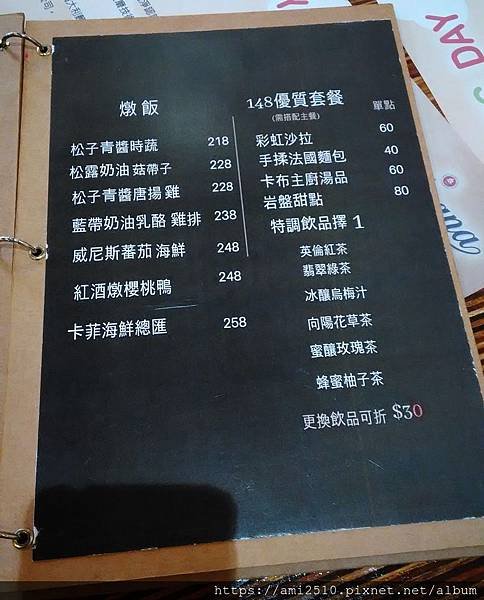 燉飯
松子青醬時蔬 218
松露奶油菇帶子 228
松子青醬唐揚雞 228
藍帶奶油乳酪雞排 238
威尼斯蕃茄海鮮 248
紅酒燉櫻桃鴨 248
卡菲海鮮總匯 258
148優質套餐 單點
(需搭配主餐)
彩虹沙拉 60
手揉法國麵包 40
卡布主廚湯品 60
岩盤甜點 80
特調飲品擇 1
英倫紅茶
翡翠綠茶
冰釀烏梅汁
向陽花草茶
蜜釀玫瑰茶
蜂蜜柚子茶
更換飲品可折 $30
DAY
https://ami2510.pixnet.net/album